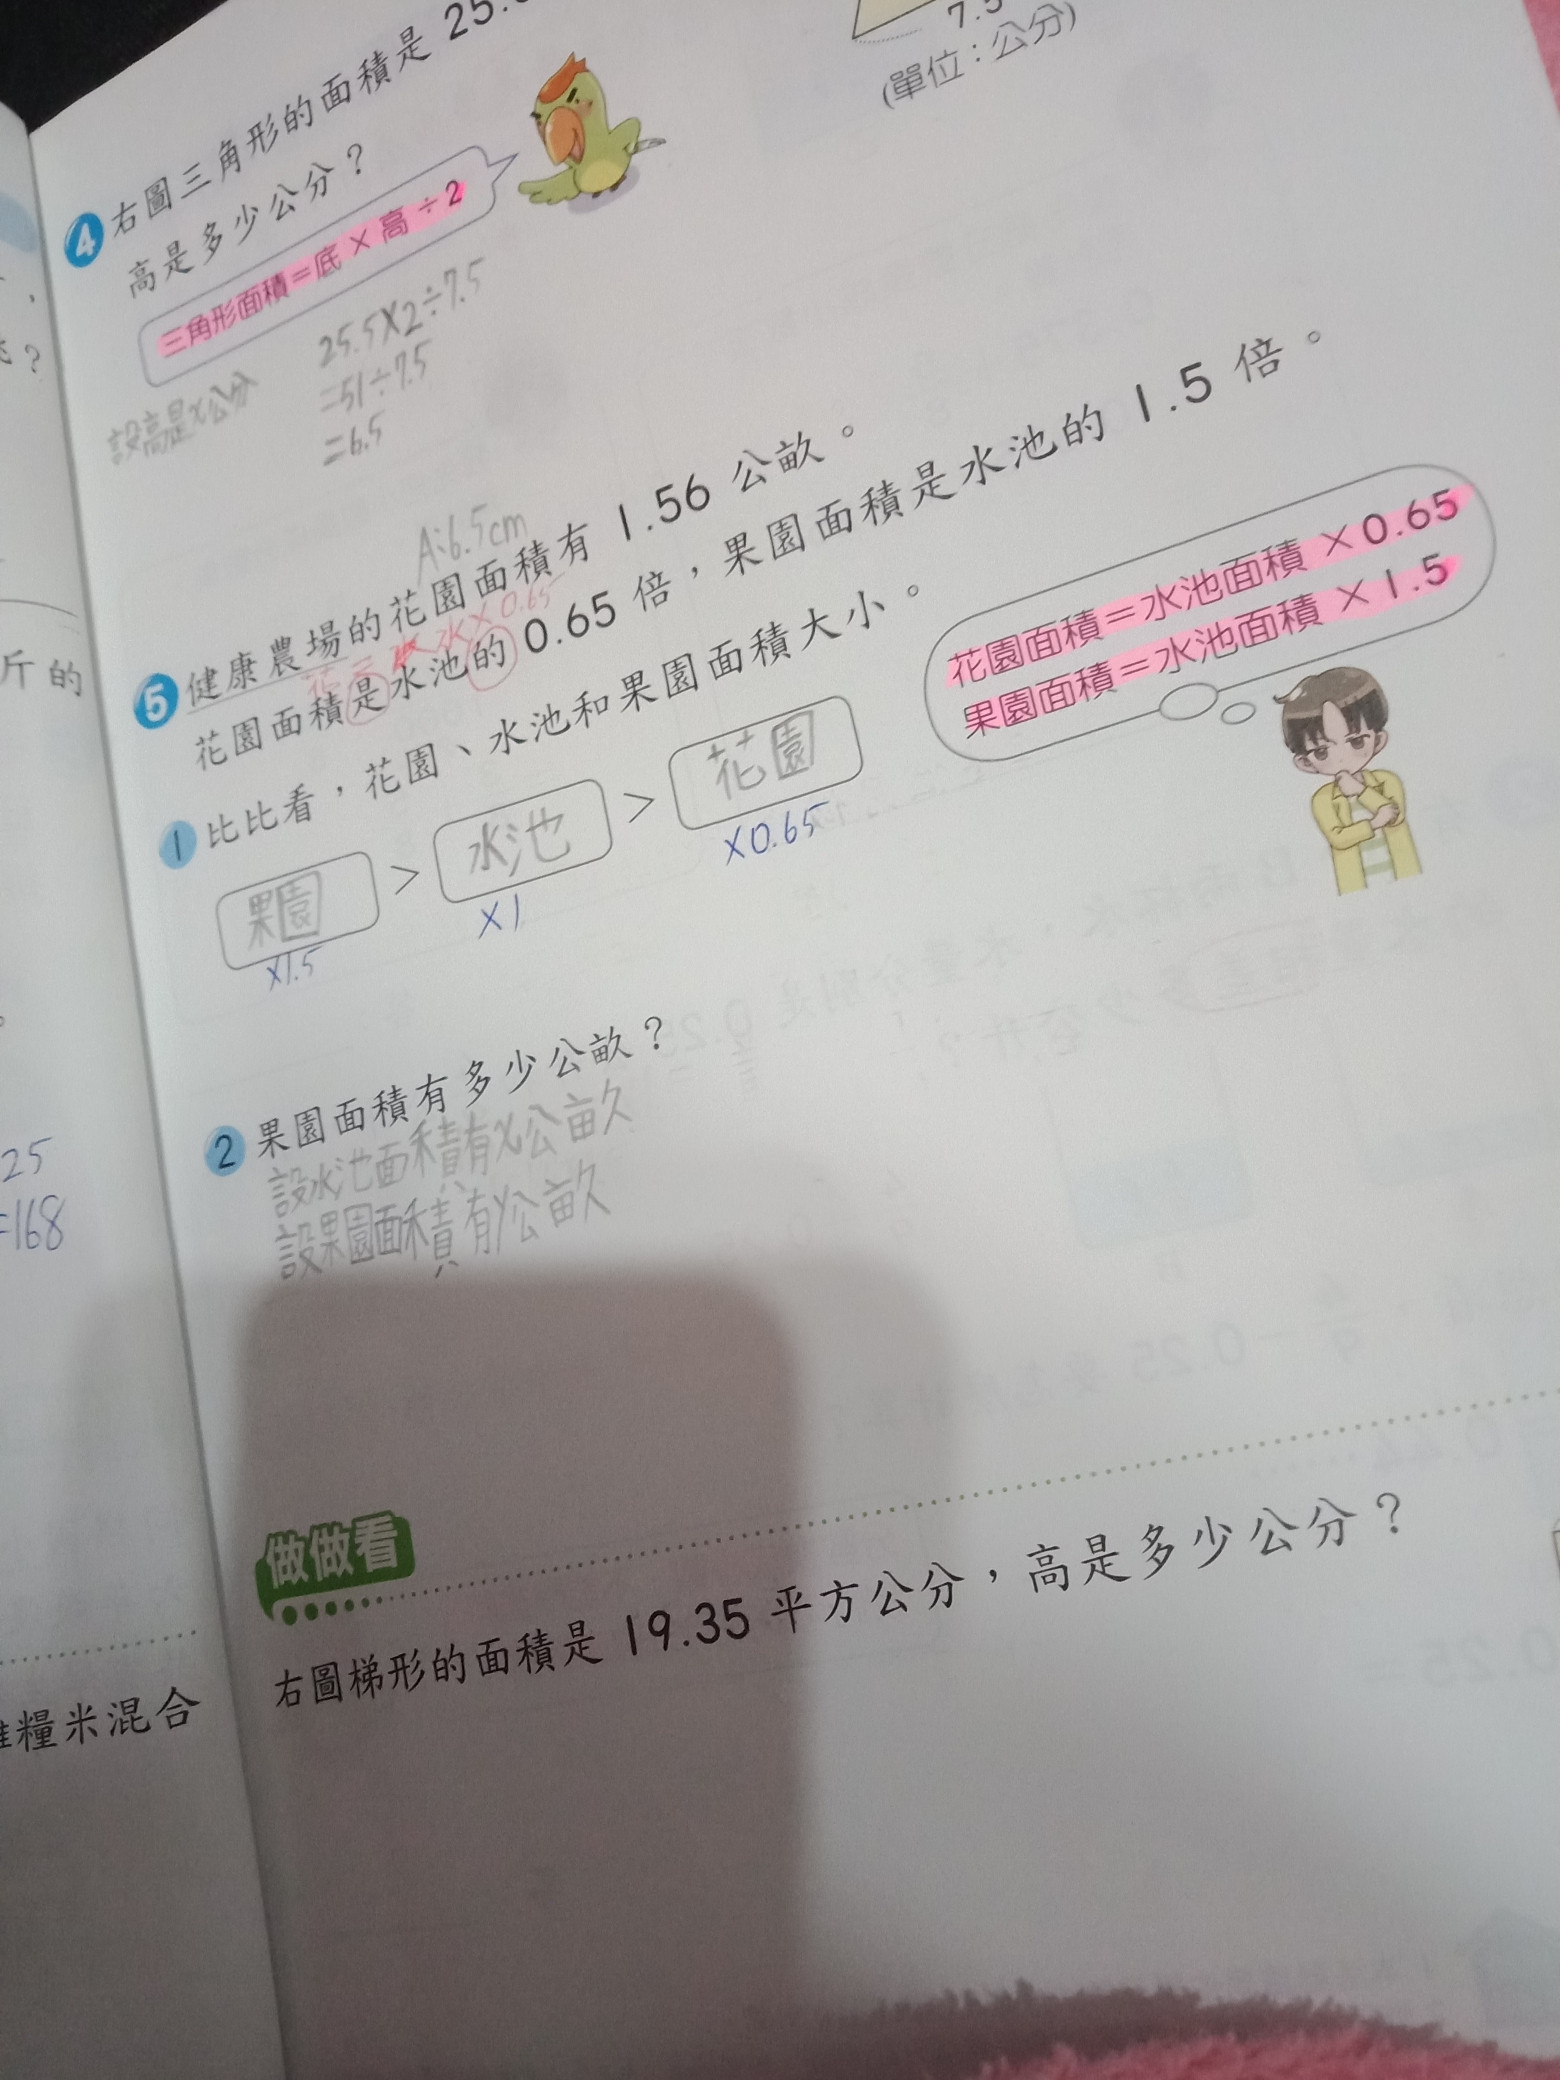 7.5
(單位：公分)
4 右圖三角形的面積是 25.
高是多少公分？
三角形面積＝底 × 高 ÷ 2
設高是x公分
25.5×2÷7.5
=51÷7.5
=6.5
A:6.5cm
5 健康農場的花園面積有 1.56 公畝。
花= 水×0.65
花園面積是水池的 0.65 倍，果園面積是水池的 1.5 倍。
1 比比看，花園、水池和果園面積大小。
果園 > 水池 > 花園
×1.5 ×1 ×0.65
花園面積＝水池面積 ×0.65
果園面積＝水池面積 ×1.5
2 果園面積有多少公畝？
設水池面積有x公畝
設果園面積有y公畝
做做看
右圖梯形的面積是 19.35 平方公分，高是多少公分？
？
斤的
25
=168
糧米混合